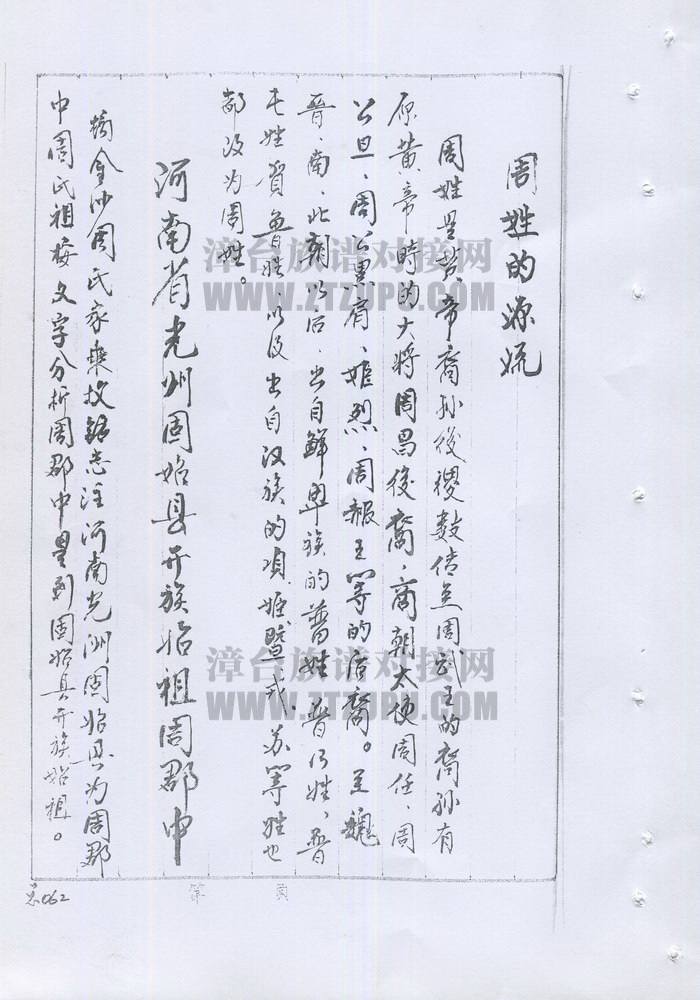 周姓的源流
周姓是黄帝裔孙後稷数传至周武王的裔孙有
原黄帝時的大将周昌後裔、商朝太使周任、周
公旦、周公黑肩、姬烈、周赧王等的后裔。至魏
晋、南、北朝以后、出自鲜卑族的普姓普乃姓、普
屯姓贺鲁姓、以及出自汉族的項姬暨、成、苏等姓也
都改为周姓。
河南省光州固始县开族始祖周郡中
金沙周氏家乘按銘志注河南光洲固始县为周郡
中周氏祖按文字分析周郡中是到固始县开族始祖。
总062
第 页
漳台族谱对接网
WWW.ZTZUPU.COM
漳台族谱对接网
WWW.ZTZUPU.COM